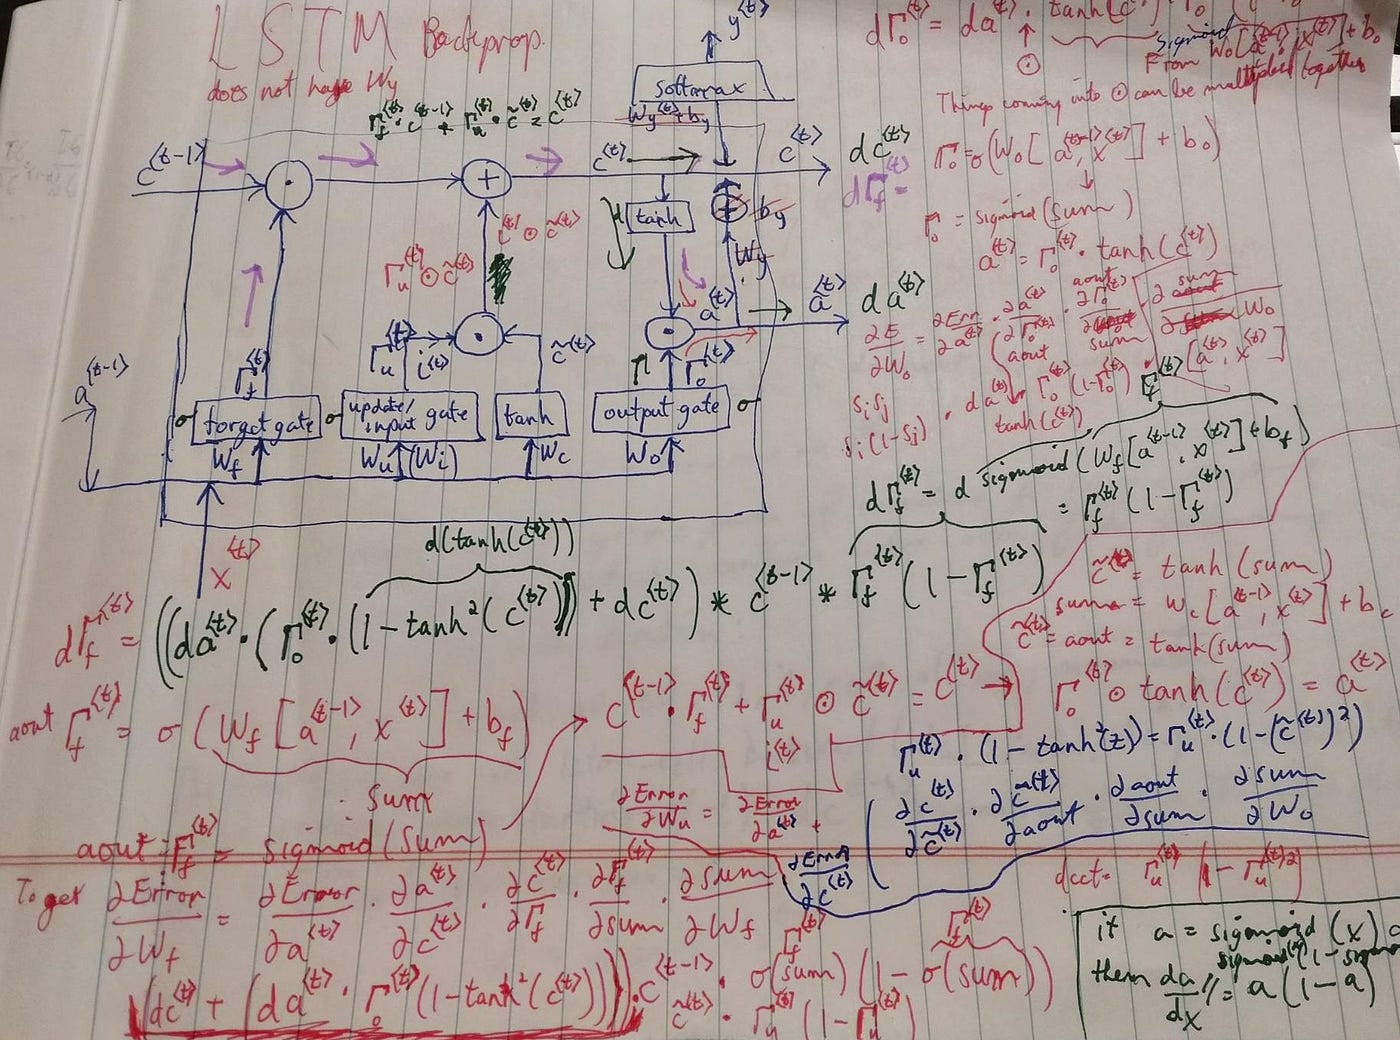 LSTM Backprop.
does not have Wy
Γf^<t> · c^<t-1> + Γu^<t> · c̃^<t> = c^<t>
y^<t>
softmax
Wy^<t> + by
c^<t-1>
c^<t>
c^<t>
dc^<t>
dΓf^<t> =
tanh
by
Wy
Γu^<t> ⊙ c̃^<t>
a^<t>
a^<t>
da^<t>
Γu^<t>
i^<t>
c̃^<t>
Γo^<t>
Γf^<t>
a^<t-1>
σ forget gate
σ update/input gate
tanh
output gate σ
Wf
Wu (Wi)
Wc
Wo
x^<t>
dΓo^<t> = da^<t> · tanh(c^<t>)
sigmoid
From Wo[a^<t-1>, x^<t>] + bo
Things coming into ⊙ can be multiplied together
Γo = σ(Wo[a^<t-1>, x^<t>] + bo)
Γo = sigmoid(sum)
a^<t> = Γo^<t> · tanh(c^<t>)
∂E/∂Wo = ∂Error/∂a^<t> · ∂a^<t>/∂Γo^<t> · ∂Γo^<t>/∂sum · ∂sum/∂Wo
aout
aout
si sj
si(1-sj)
· da^<t> · Γo^<t>(1-Γo^<t>) · [a^<t>, x^<t>]
tanh(c^<t>)
Γf^<t>
dΓf^<t> = d sigmoid(Wf[a^<t-1>, x^<t>] + bf)
= Γf^<t>(1-Γf^<t>)
d(tanh(c^<t>))
dΓf^<t> = ((da^<t> · (Γo^<t> · (1-tanh²(c^<t>))) + dc^<t>) * c^<t-1> * Γf^<t>(1-Γf^<t>)
c̃^<t> = tanh(sum)
sum = Wc[a^<t-1>, x^<t>] + bc
c̃^<t> = aout = tanh(sum)
aout Γf^<t> = σ(Wf[a^<t-1>, x^<t>] + bf)
sum
c^<t-1> · Γf^<t> + Γu^<t> ⊙ c̃^<t> = c^<t> →
i^<t>
Γo^<t> ⊙ tanh(c^<t>) = a^<t>
Γu^<t> · (1-tanh²(z)) = Γu^<t> · (1-(c̃^<t>)²)
∂Error/∂Wu = ∂Error/∂a^<t> +
∂Error/∂c^<t> (∂c^<t>/∂c̃^<t> · ∂c̃^<t>/∂aout · ∂aout/∂sum · ∂sum/∂Wo
aout = Γf^<t> = sigmoid(sum)
To get ∂Error/∂Wf = ∂Error/∂a^<t> · ∂a^<t>/∂c^<t> · ∂c^<t>/∂Γf · ∂Γf^<t>/∂sum · ∂sum/∂Wf
dcct = Γu^<t>(1-Γu^<t>2)
Γf^<t>
Γf^<t>
(dc^<t> + (da^<t> · Γo^<t>(1-tanh²(c^<t>)))) · c^<t-1> · σ(sum)(1-σ(sum))
c̃^<t> · Γu^<t>(1-Γu^<t>)
if a = sigmoid(x)
then da/dx = a(1-a)